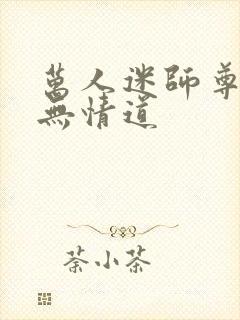 萬人迷師尊
無情道
荼小茶